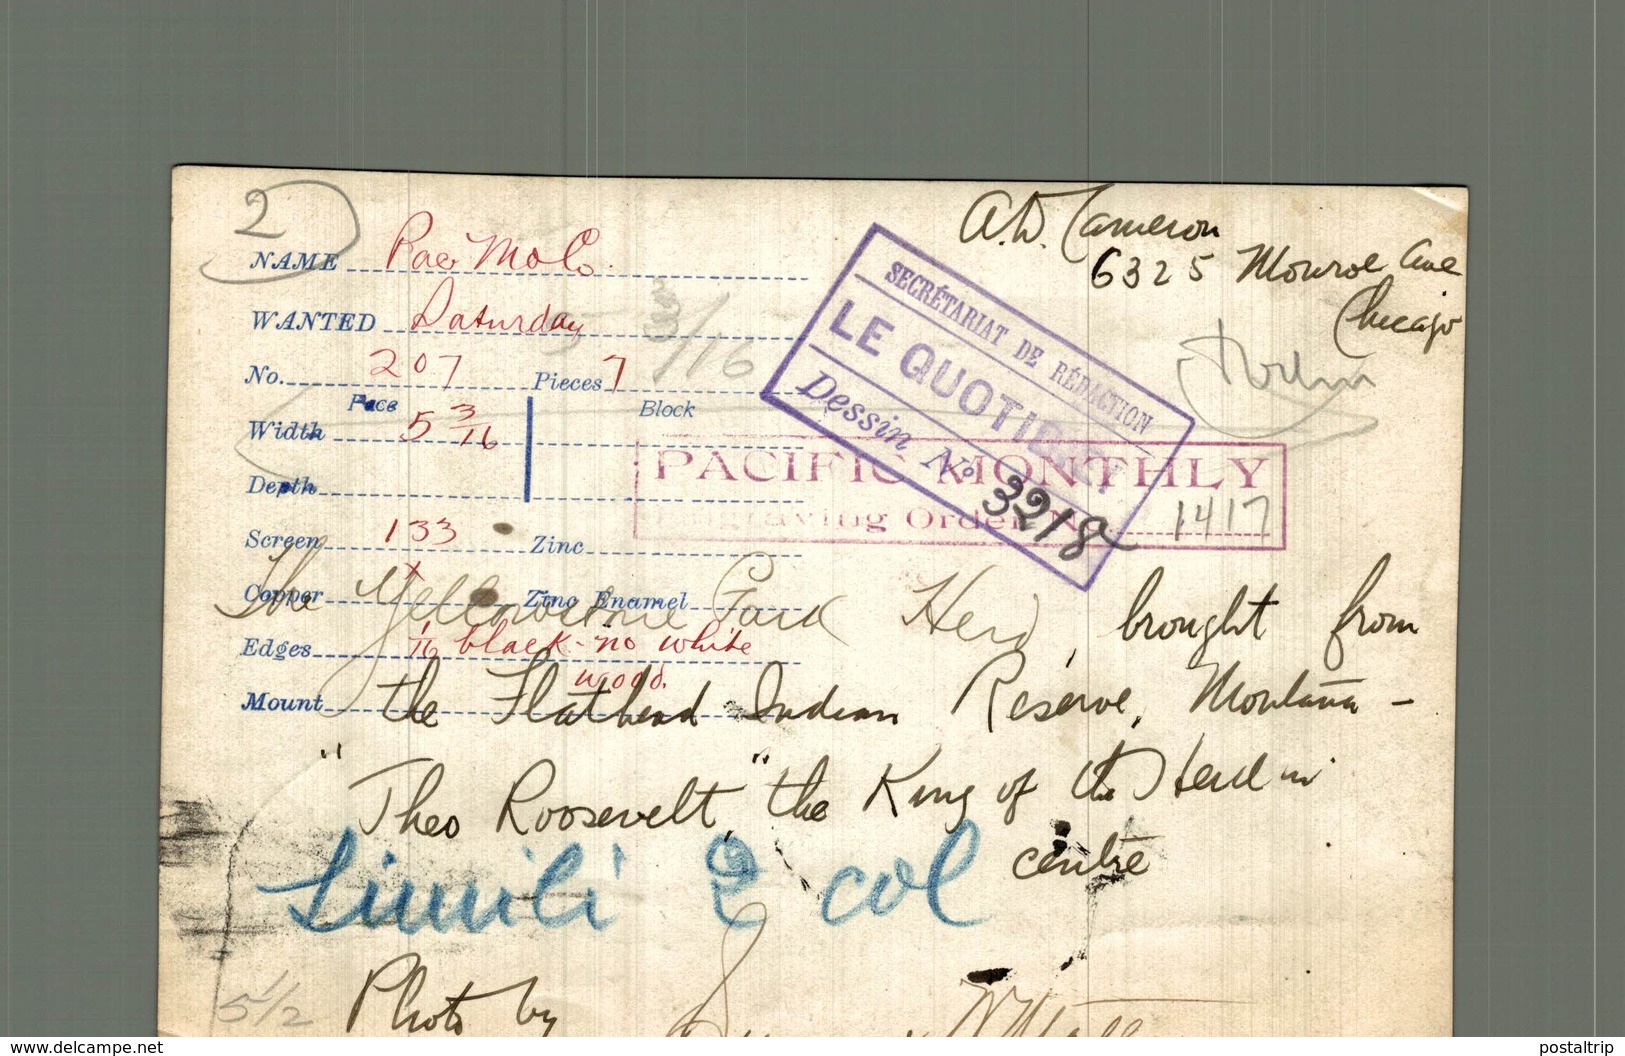 2
A.D. Cameron
6325 Monroe Ave
Chicago
NAME Pac Mo Co.
WANTED Saturday
No. 207 Pieces 7
3/16
SECRÉTARIAT DE RÉDACTION
LE QUOTIDIEN
Dessin No 3218
Face Block
Width 5 3/16
Depth
PACIFIC MONTHLY
Engraving Order No. 1417
Screen 133 Zinc
Copper x Zinc Enamel
Edges 1/16 black - no white
wood.
Mount
The Yellowstone Park Herd, brought from
the Flathead Indian Reserve, Montana -
"Theo Roosevelt," the King of the Herd in
centre
Simili 2 col
5 1/2
Photo by
www.delcampe.net
postaltrip